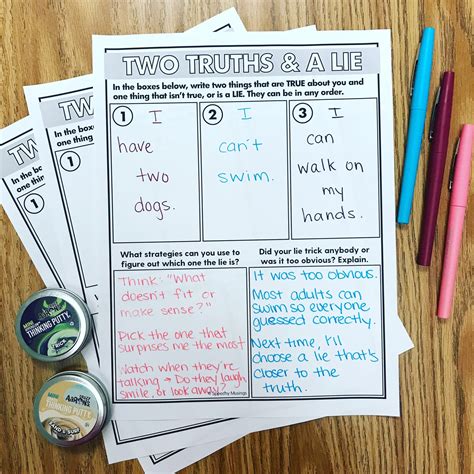 TWO TRUTHS & A LIE
In the boxes below, write two things that are TRUE about you and
one thing that isn't true, or is a LIE. They can be in any order.
1 I
have
two
dogs.
2 I
can't
swim.
3 I
can
walk on
my
hands.
What strategies can you use to
figure out which one the lie is?
Think: "What
doesn't fit or
make sense?"
Pick the one that
surprises me the most
Watch when they're
talking → Do they laugh,
smile, or look away?
Did your lie trick anybody or
was it too obvious? Explain.
It was too obvious.
Most adults can
swim so everyone
guessed correctly.
Next time, I'll
choose a lie that's
closer to the
truth.
© Speechy Musings
TWO
In the boxes
one thing th
1
TW
In the
one thin
1
MINI
THINKING PUTTY
MINI
THINKING PUTTY